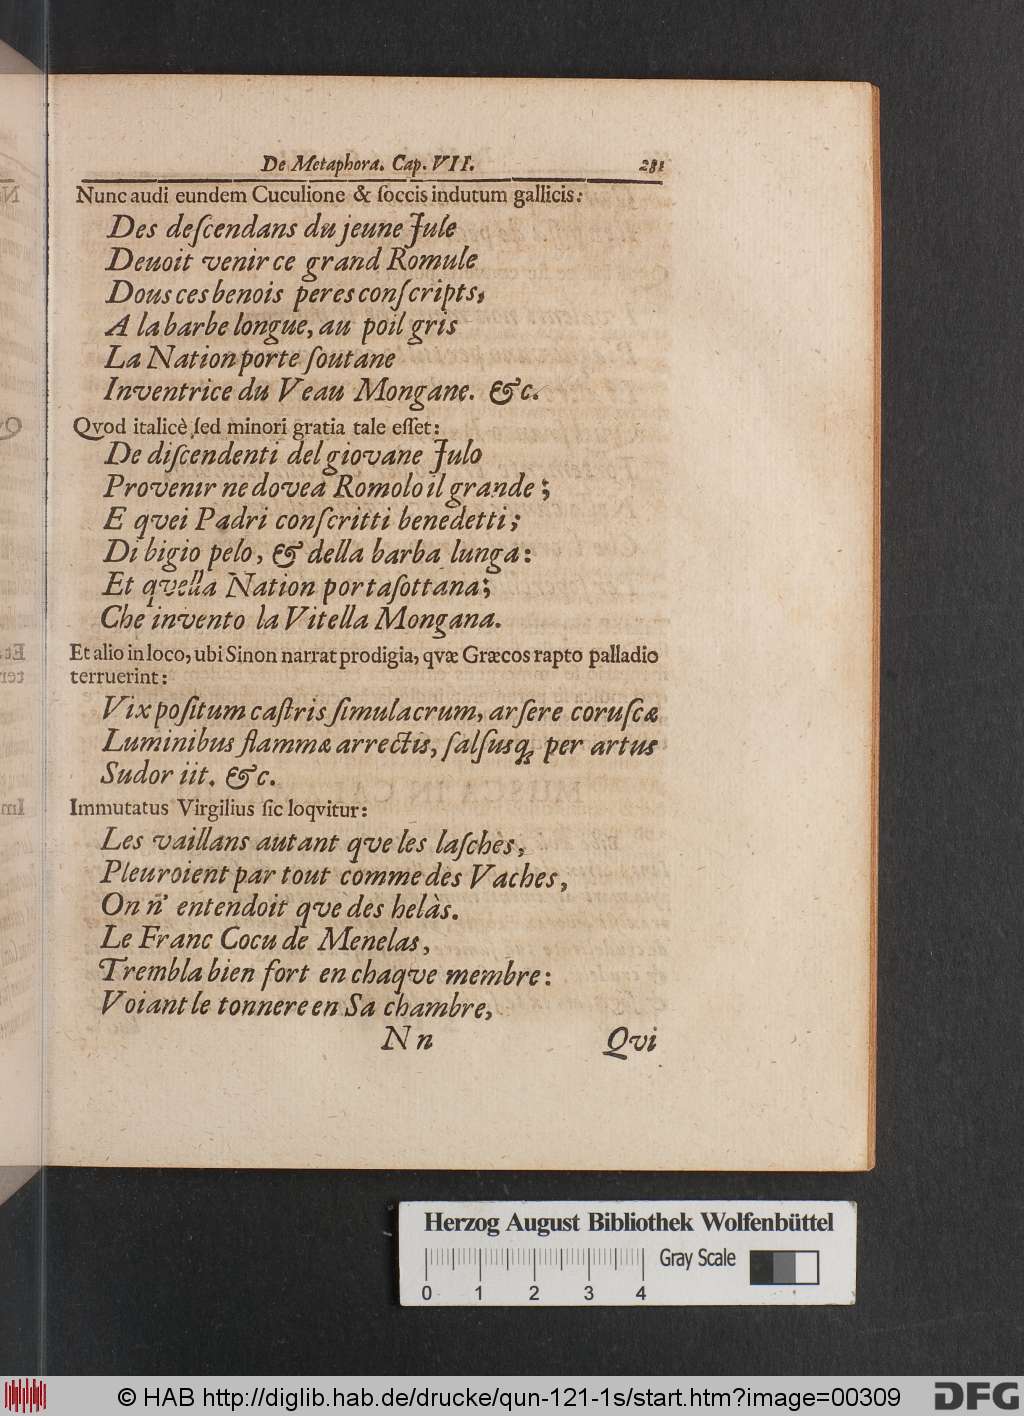 De Metaphora. Cap. VII. 281
Nunc audi eundem Cuculione & ſoccis indutum gallicis:
Des deſcendans du jeune Jule
Deuoit venir ce grand Romule
Dous ces benois peres conſcripts,
A la barbe longue, au poil gris
La Nation porte ſoutane
Inventrice du Veau Mongane. &c.
Qvod italicè ſed minori gratia tale eſſet:
De diſcendenti del giovane Julo
Provenir ne dovea Romolo il grande;
E qvei Padri conſcritti benedetti;
Di bigio pelo, & della barba lunga:
Et qvella Nation porta ſottana;
Che invento la Vitella Mongana.
Et alio in loco, ubi Sinon narrat prodigia, qvæ Græcos rapto palladio
terruerint:
Vix poſitum caſtris ſimulacrum, arſere coruſcæ
Luminibus flammæ arrectis, ſalſusq; per artus
Sudor iit. &c.
Immutatus Virgilius ſic loqvitur:
Les vaillans autant qve les laſchés,
Pleuroient par tout comme dès Vaches,
On n' entendoit qve des helàs.
Le Franc Cocu de Menelas,
Trembla bien fort en chaqve membre:
Voiant le tonnere en Sa chambre,
N n Qvi
Herzog August Bibliothek Wolfenbüttel
Gray Scale
0 1 2 3 4
© HAB http://diglib.hab.de/drucke/qun-121-1s/start.htm?image=00309
DFG